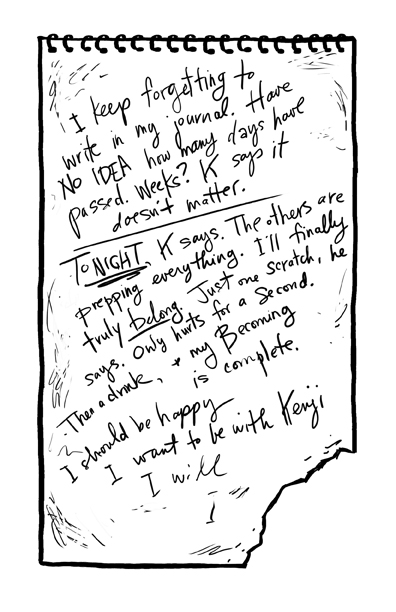 I keep forgetting to
write in my journal. Have
NO IDEA how many days have
passed. Weeks? K says it
doesn't matter.
TONIGHT, K says. The others are
prepping everything. I'll finally
truly belong. Just one scratch, he
says. Only hurts for a second.
Then a drink, & my Becoming
is complete.
I should be happy
I want to be with Kenji
I will
I